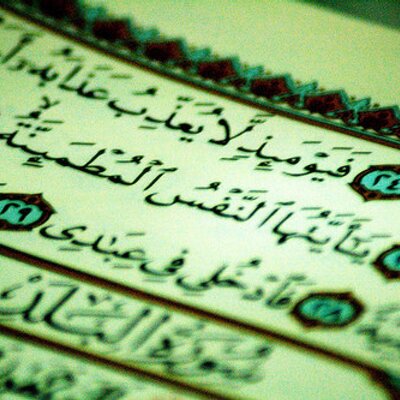 ٢٤ فَيَوْمَئِذٍ لَّا يُعَذِّبُ عَذَابَهُۥٓ
يَٰٓأَيَّتُهَا ٱلنَّفْسُ ٱلْمُطْمَئِنَّةُ
٢٨ فَٱدْخُلِى فِى عِبَٰدِى ٢٩
سُورَةُ البَلَدِ